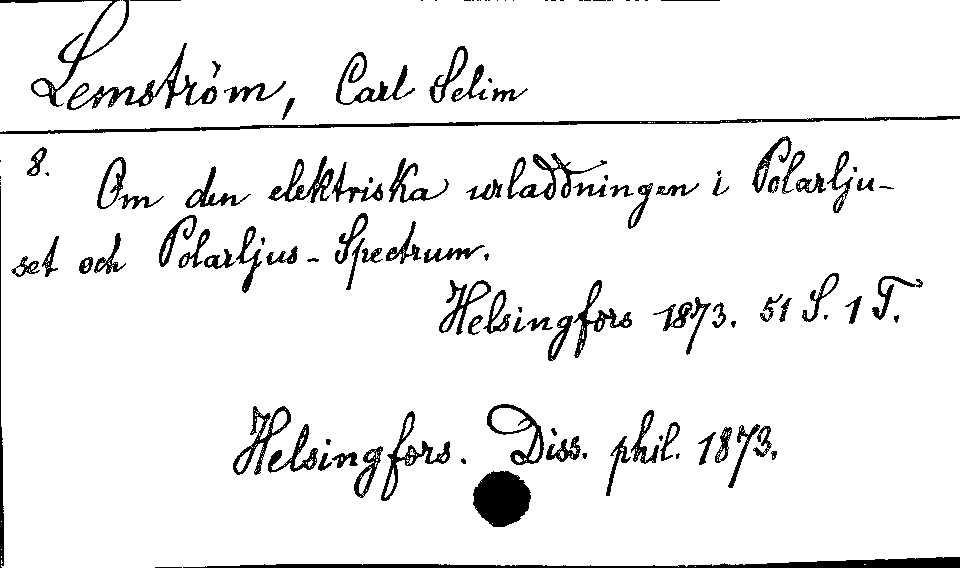 Lemström, Carl Selim
8.
Om den elektriska urladdningen i Polarlju-
set och Polarljus-Spectrum.
Helsingfors 1873. 51 S. 1 T.
Helsingfors. Diss. phil. 1873.